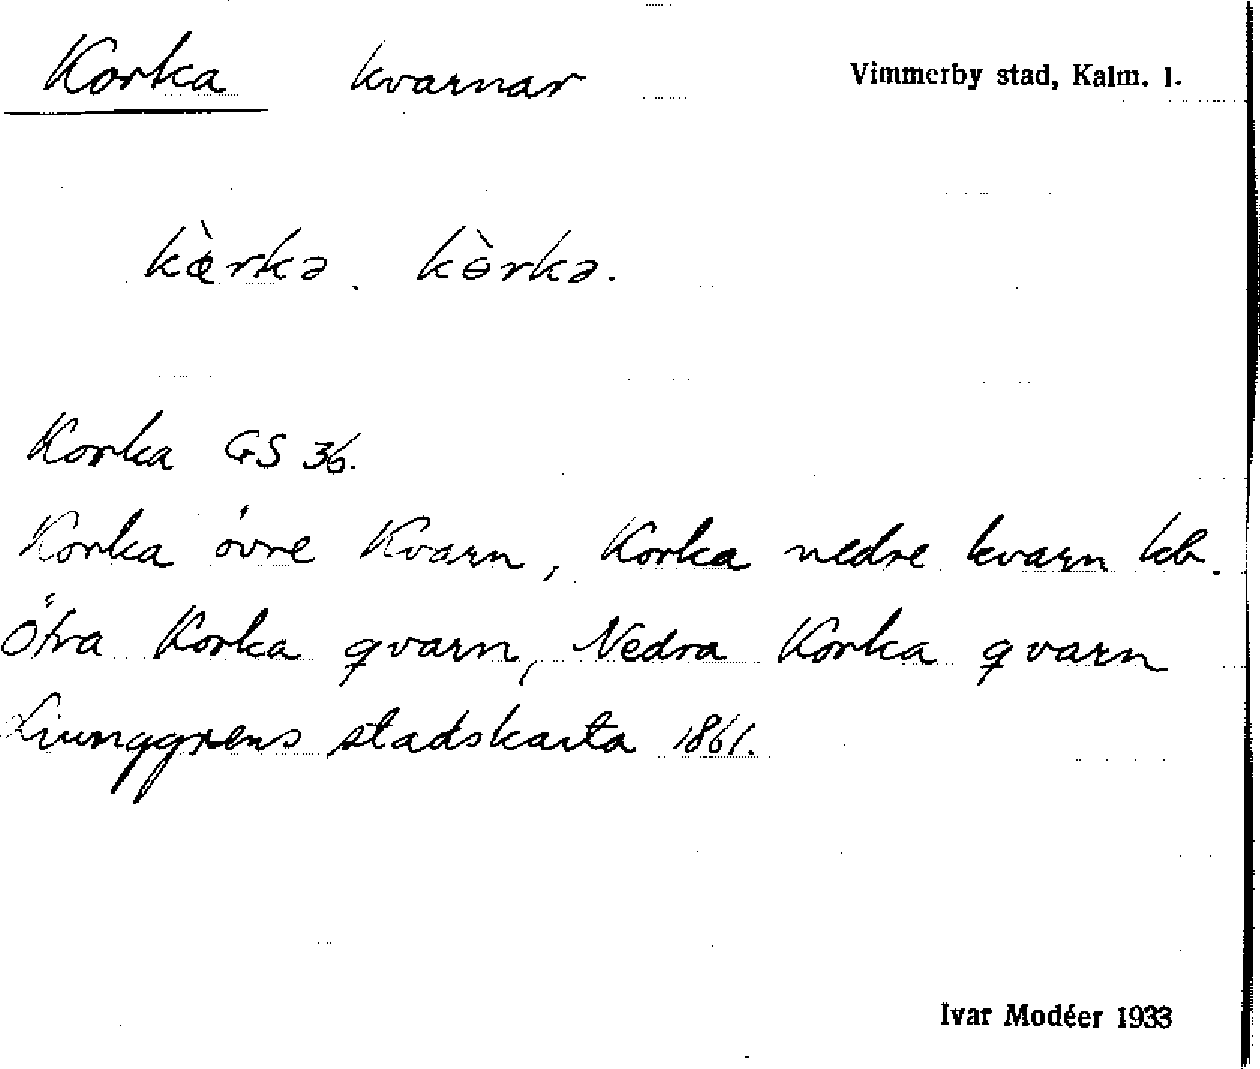 Korka kvarnar Vimmerby stad, Kalm. l.
kærkə. kòrkə.
Korka GS 36.
Korka övre Kvarn, Korka nedre kvarn kb.
Öfra Korka qvarn, Nedra Korka qvarn
Liunggrens stadskarta 1861.
Ivar Modéer 1933